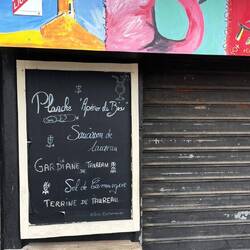 Planche "Apéros du Biòu"
Saucisson de taureau
GARDIANE DE TAUREAU
Sel de Camargue
TERRINE DE TAUREAU